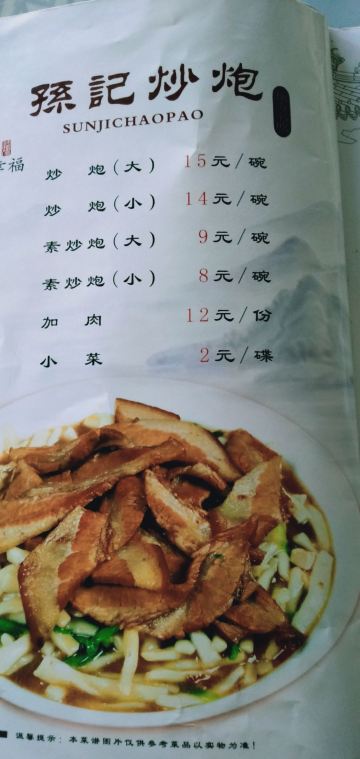 孫記炒炮
SUNJICHAOPAO
福
炒 炮(大) 15元/碗
炒 炮(小) 14元/碗
素炒炮(大) 9元/碗
素炒炮(小) 8元/碗
加 肉 12元/份
小 菜 2元/碟
温馨提示:本菜谱图片仅供参考菜品以实物为准!